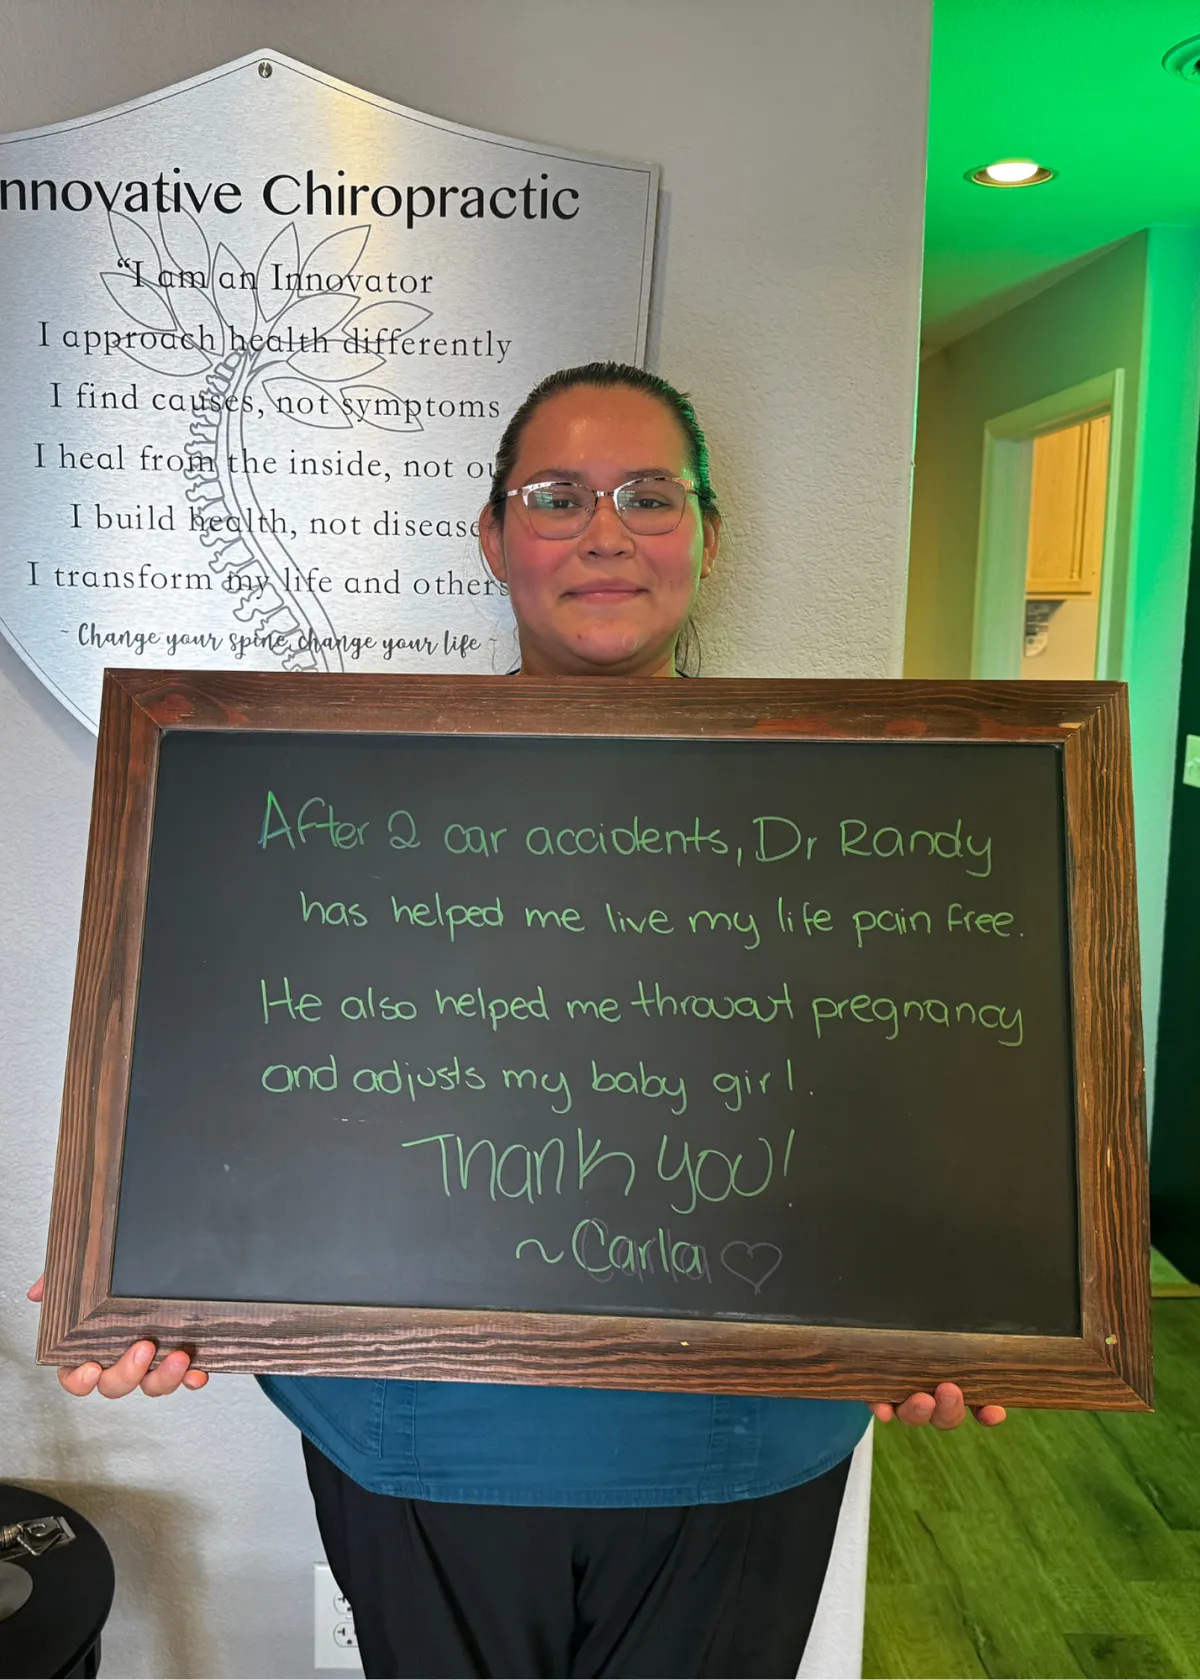 nnovative Chiropractic
“I am an Innovator
I approach health differently
I find causes, not symptoms
I heal from the inside, not ou
I build health, not disease
I transform my life and others
~ Change your spine, change your life ~
After 2 car accidents, Dr Randy
has helped me live my life pain free.
He also helped me throuout pregnancy
and adjusts my baby girl.
Thank you!
~ Carla ♡